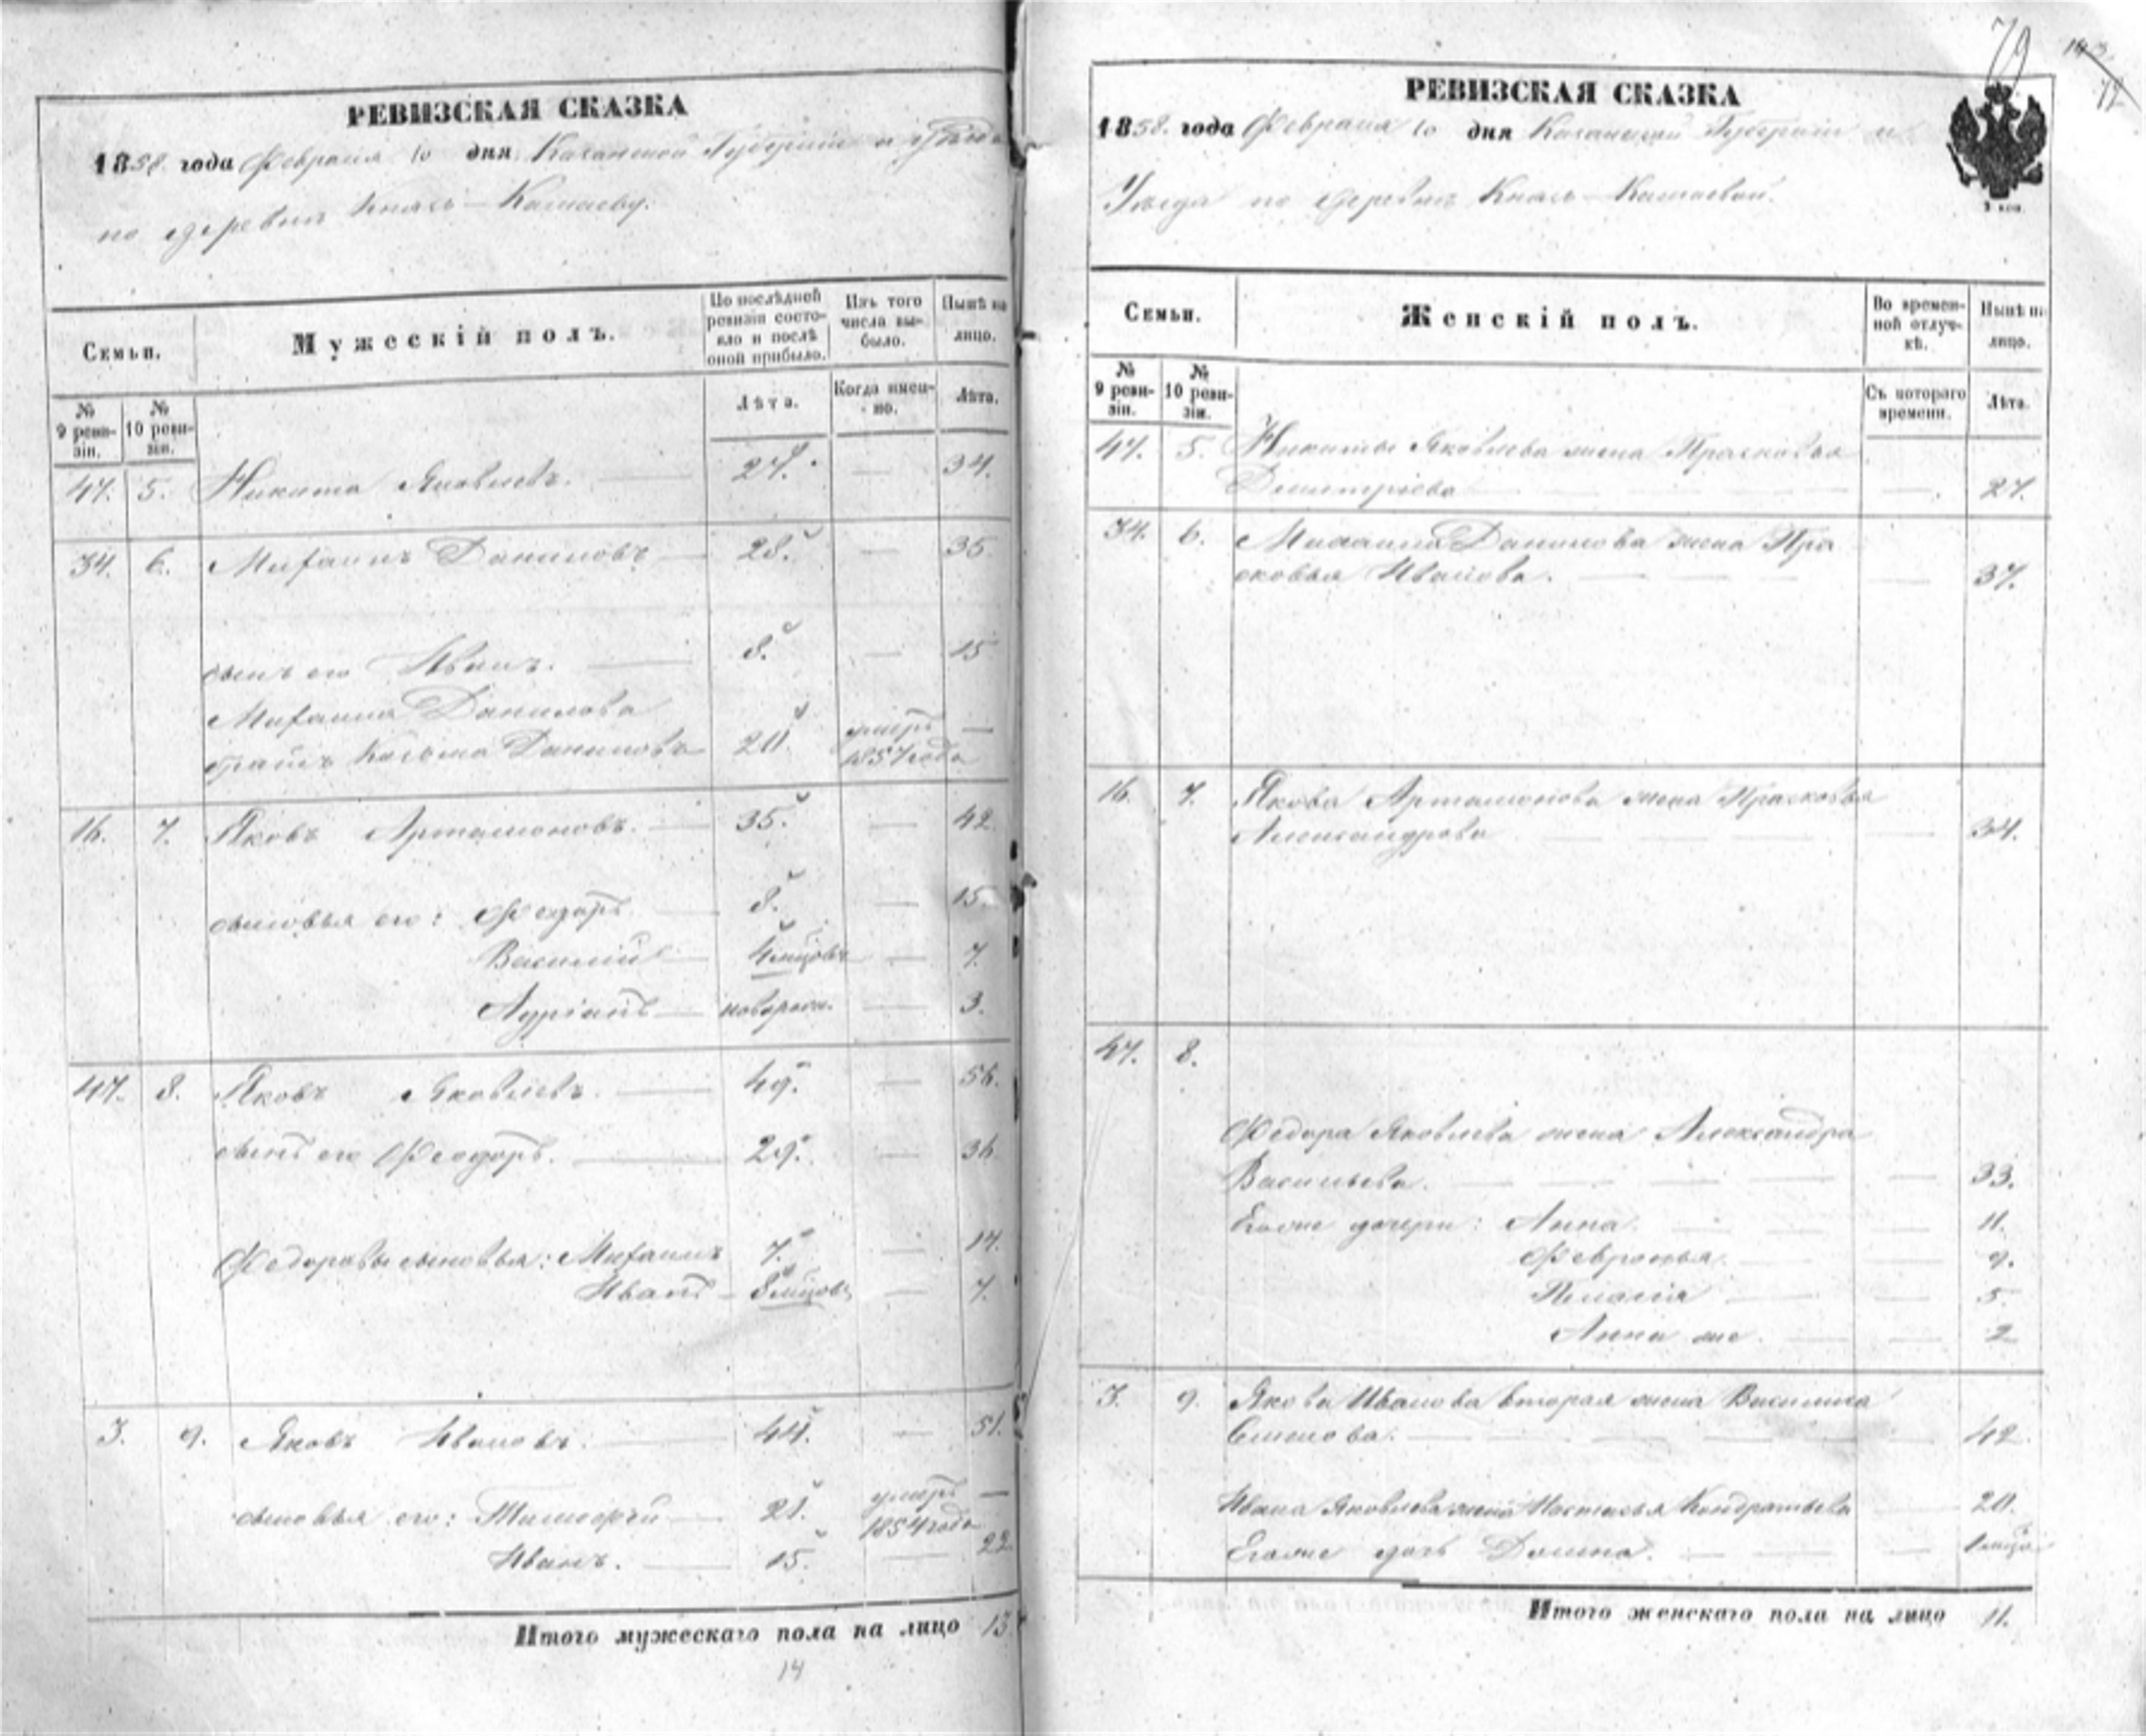 РЕВИЗСКАЯ СКАЗКА
1858. года Февраля 10 дня Казанской Губерніи и уѣзда
по деревни Князь-Камаеву.
Семьи.
Мужескій полъ.
По послѣдней ревизіи состояло и послѣ оной прибыло.
Изъ того числа выбыло.
Нынѣ на лицо.
№ 9 ревизіи.
№ 10 ревизіи.
Лѣта.
Когда именно.
Лѣта.
47. 5. Никита Яковлевъ. — 27. — 34.
34. 6. Михаилъ Даниловъ — 28. — 35
сынъ его Иванъ. — 8. — 15
Михаила Данилова
братъ Козьма Даниловъ 20. умеръ 1857 года —
16. 7. Яковъ Артамоновъ. — 35. — 42.
сыновья его: Федоръ — 8. — 15.
Василій — 4 мцовъ — 7.
Адріанъ — новорожд. — 3.
47. 8. Яковъ Яковлевъ. — 49. — 56.
сынъ его Феодоръ. — 29. — 36.
Федоровы сыновья: Михаилъ 7. — 14.
Иванъ — 8 мцовъ — 7.
3. 9. Яковъ Ивановъ. — 44. — 51.
сыновья его: Тимофей — 21. умеръ 1854 года —
Иванъ. — 15. — 22.
Итого мужескаго пола на лицо 13.
14
79
РЕВИЗСКАЯ СКАЗКА
1858. года Февраля 10 дня Казанской Губерніи и
Уѣзда по деревнѣ Князь-Камаевой.
Семьи.
Женскій полъ.
Во временной отлучкѣ.
Нынѣ на лицо.
№ 9 ревизіи.
№ 10 ревизіи.
Съ котораго времени.
Лѣта.
47. 5. Никиты Яковлева жена Прасковья
Дмитріева — — 27.
34. 6. Михаила Данилова жена Пра
сковья Иванова. — — 37.
16. 7. Якова Артамонова жена Прасковья
Александрова — — 34.
47. 8.
Федора Яковлева жена Александра
Васильева. — — 33.
Егоже дочери: Анна. — — 11.
Февронья. — — 9.
Пелагія — — 5.
Анна же. — — 2
3. 9. Якова Иванова вторая жена Василиса
Семенова. — — 42.
Ивана Яковлева жена Настасья Кондратьева — 20.
Егоже дочь Домна. — — 1 мца
Итого женскаго пола на лицо 11.